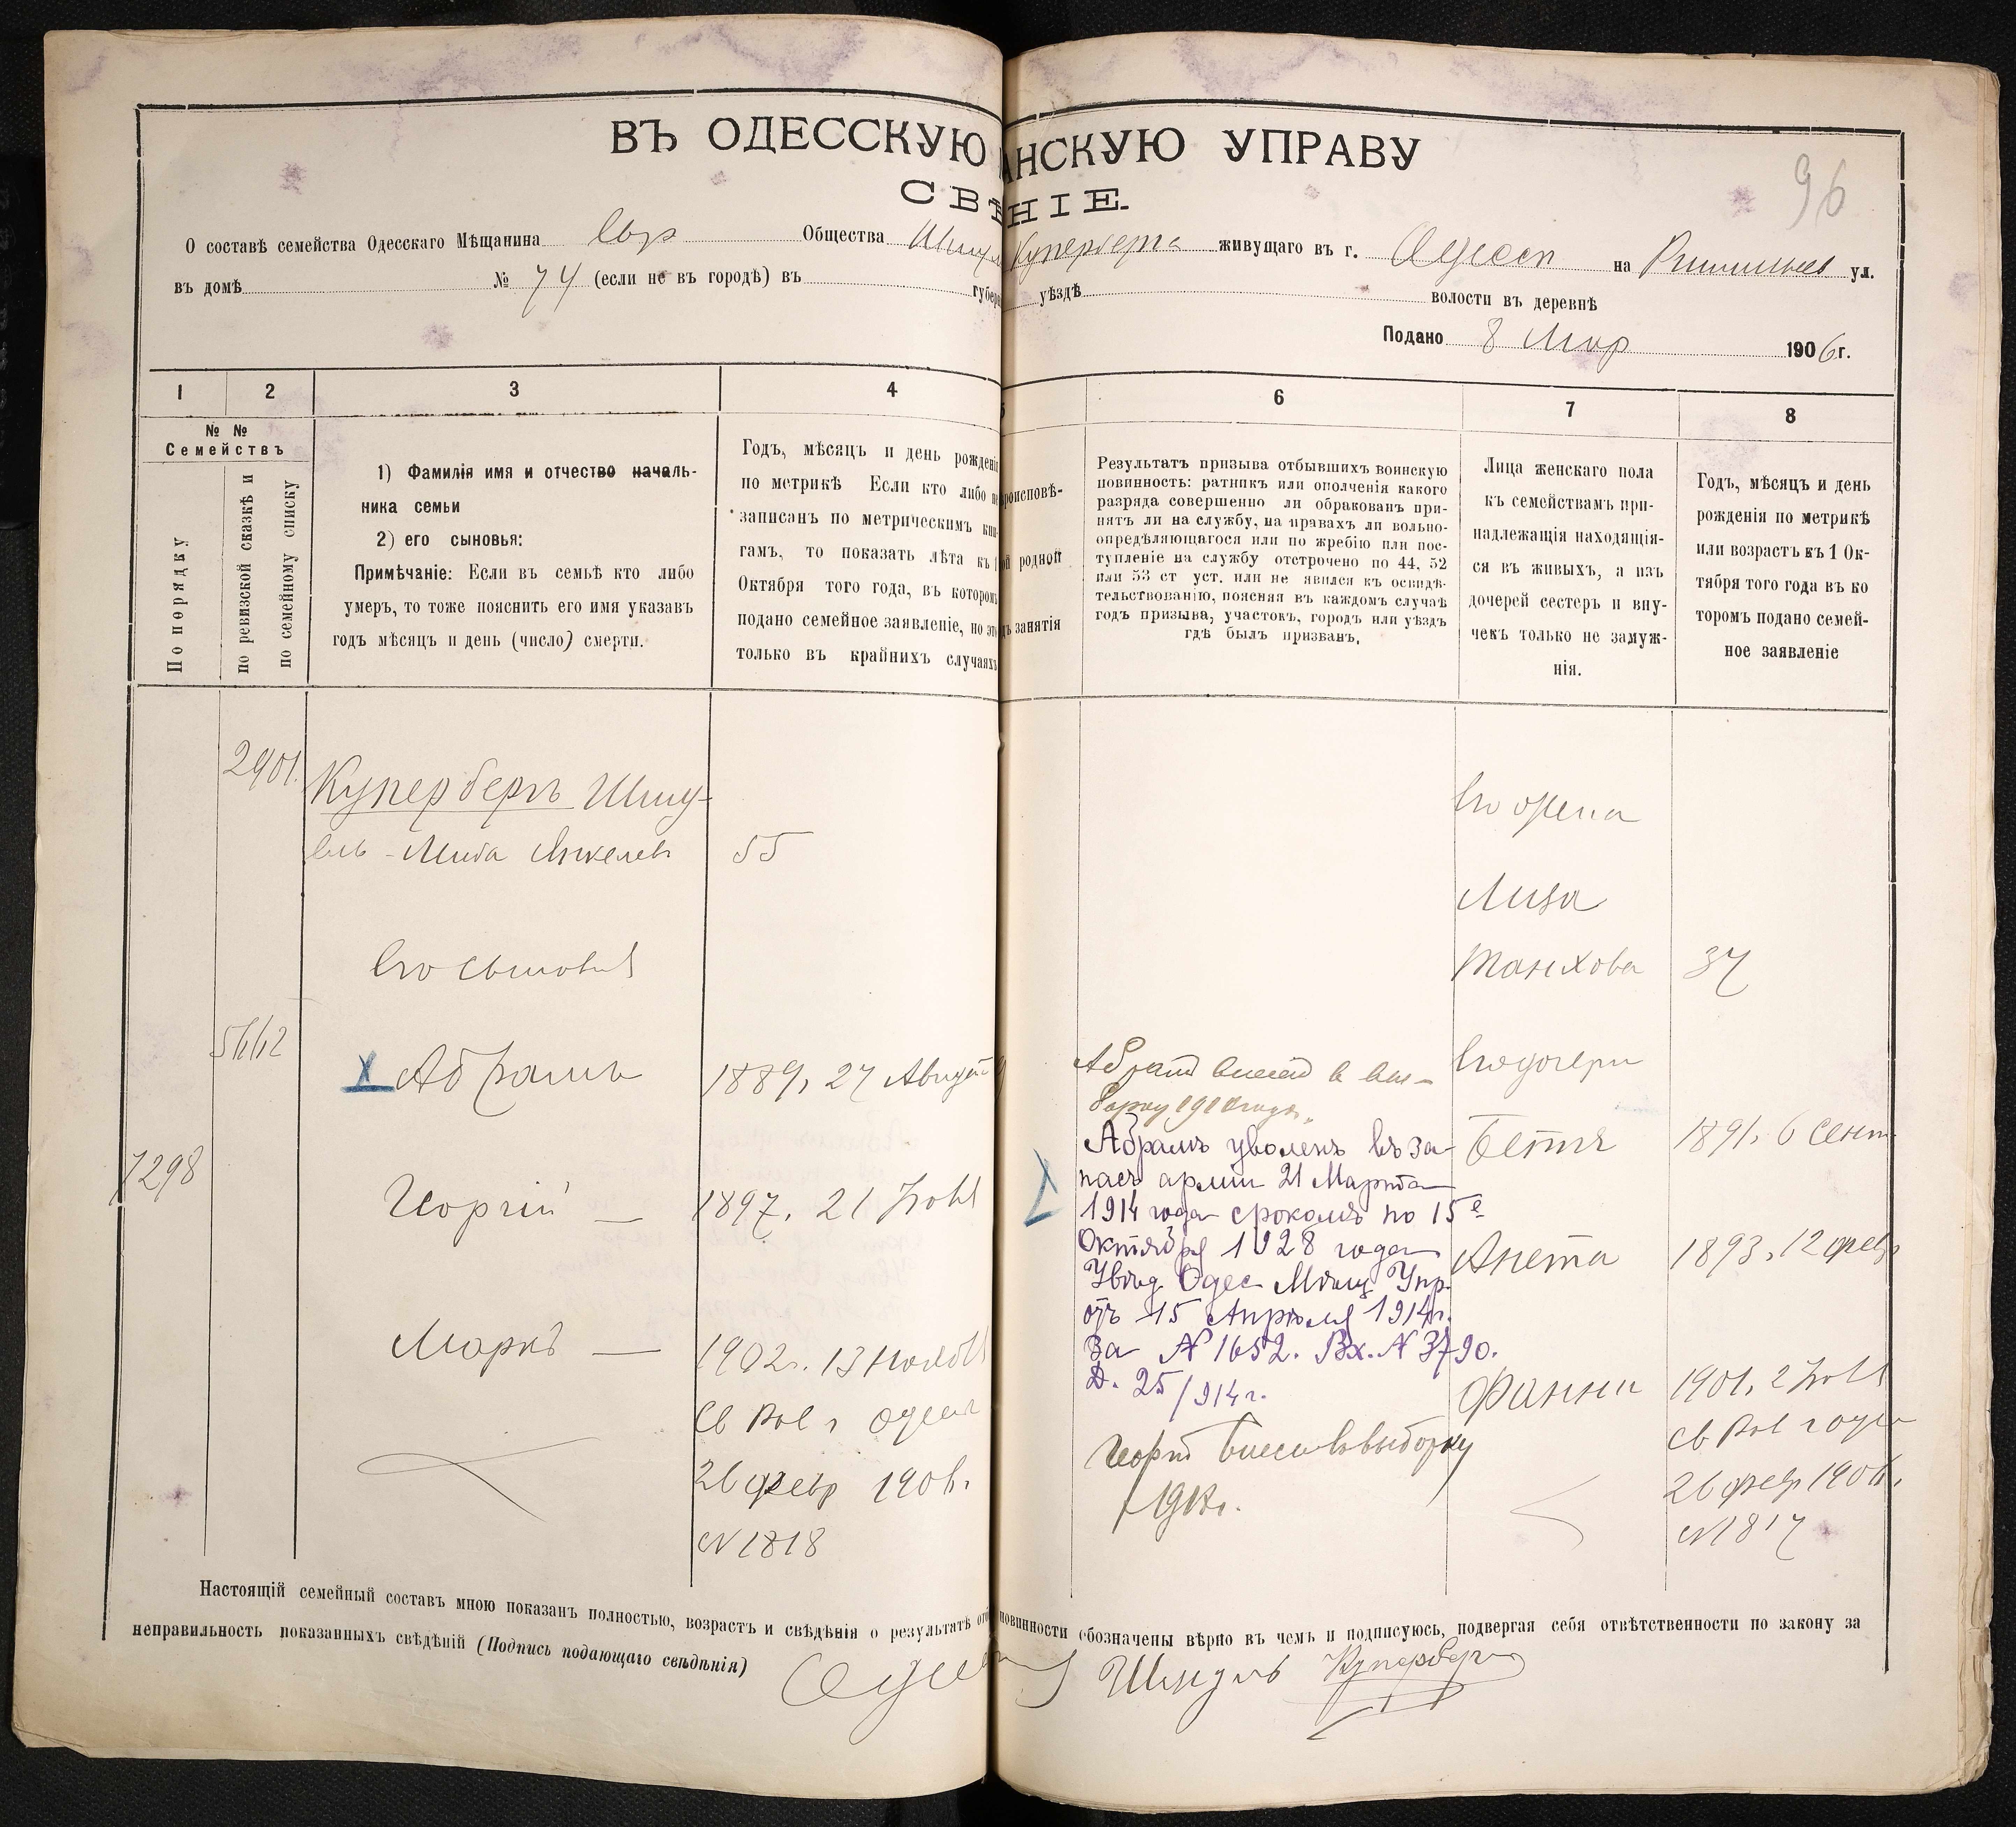 ВЪ ОДЕССКУЮ АНСКУЮ УПРАВУ
СВѢ НІЕ.
96
О составѣ семейства Одесскаго Мѣщанина Евр Общества Шмул Куперберга живущаго въ г. Одессѣ на Ришильев ул.
въ домѣ № 74 (если не въ городѣ) въ губер уѣздѣ волости въ деревнѣ
Подано 8 Мар 1906 г.
1 2 3 4 5 6 7 8
№ №
Семействъ
По порядку
по ревизской сказкѣ и
по семейному списку
1) Фамилія имя и отчество началь-
ника семьи
2) его сыновья:
Примѣчаніе: Если въ семьѣ кто либо
умеръ, то тоже пояснить его имя указавъ
годъ мѣсяцъ и день (число) смерти.
Годъ, мѣсяцъ и день рожденія
по метрикѣ Если кто либо не
записанъ по метрическимъ кни-
гамъ, то показать лѣта къ 1
Октября того года, въ которомъ
подано семейное заявленіе, но это
только въ крайнихъ случаяхъ
роисповѣ-
й родной
ъ занятія
Результатъ призыва отбывшихъ воинскую
повинность: ратникъ или ополченія какого
разряда совершенно ли обракован при-
нятъ ли на службу, на правахъ ли вольно-
опредѣляющагося или по жребію или пос-
тупленіе на службу отстрочено по 44, 52
или 53 ст уст. или не явился къ освидѣ-
тельствованію, поясняя въ каждомъ случаѣ
годъ призыва, участокъ, городъ или уѣздъ
гдѣ былъ призванъ.
Лица женскаго пола
къ семействамъ при-
надлежащія находящія-
ся въ живыхъ, а изъ
дочерей сестеръ и вну-
чекъ только не замуж-
нія.
Годъ, мѣсяцъ и день
рожденія по метрикѣ
или возрастъ къ 1 Ок-
тября того года въ ко
торомъ подано семей-
ное заявленіе
2901.
Купербергъ Шму-
ель-Лейба Янкелевъ 55
Его сыновья
5662
х Абрамъ 1889, 27 Август
7298
Георгій — 1897, 21 Іюня
Маркъ — 1902г. 13 Ноября
Св Рав г Одессы
26 февр 1906г.
N 1818
Абрам внесен в вы-
борку 1910 года.
Абрамъ уволенъ въ за-
пасъ арміи 21 Марта
1914 года срокомъ по 15е
Октября 1928 года
Увѣд. Одес Мѣщ Упр.
отъ 15 Апрѣля 1914г.
За N 1652. Вх. N 3790.
Д. 25/914г.
Георг внесен в выборку
Его жена
Лиза
Танхова 37
Его дочери
Бетя 1891, 6 Сент
Анета 1893, 12 февр
Фанни 1901, 2 Іюля
Св Рав г Одес
26 февр 1906г.
N 1817
Настоящій семейный составъ мною показанъ полностью, возрастъ и свѣдѣнія о результатѣ отб повинности обозначены вѣрно въ чемъ и подписуюсь, подвергая себя отвѣтственности по закону за
неправильность показанныхъ свѣдѣній (Подпись подающаго свѣдѣнія) Шмуль Купербергъ